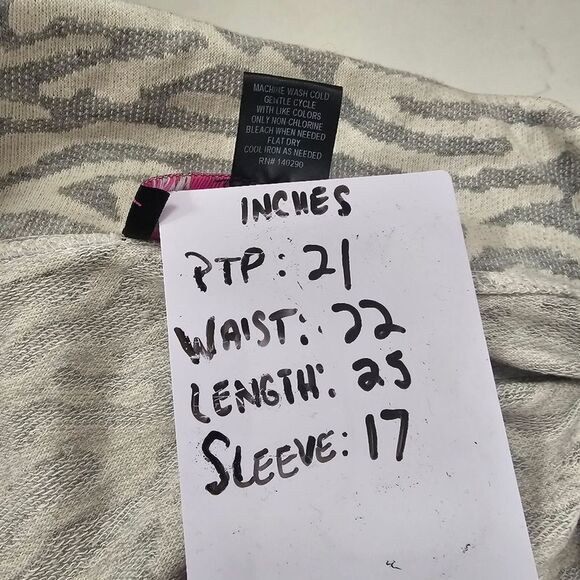 MACHINE WASH COLD
GENTLE CYCLE
WITH LIKE COLORS
ONLY NON CHLORINE
BLEACH WHEN NEEDED
FLAT DRY
COOL IRON AS NEEDED
RN# 140290
INCHES
PTP: 21
WAIST: 22
LENGTH: 25
SLEEVE: 17